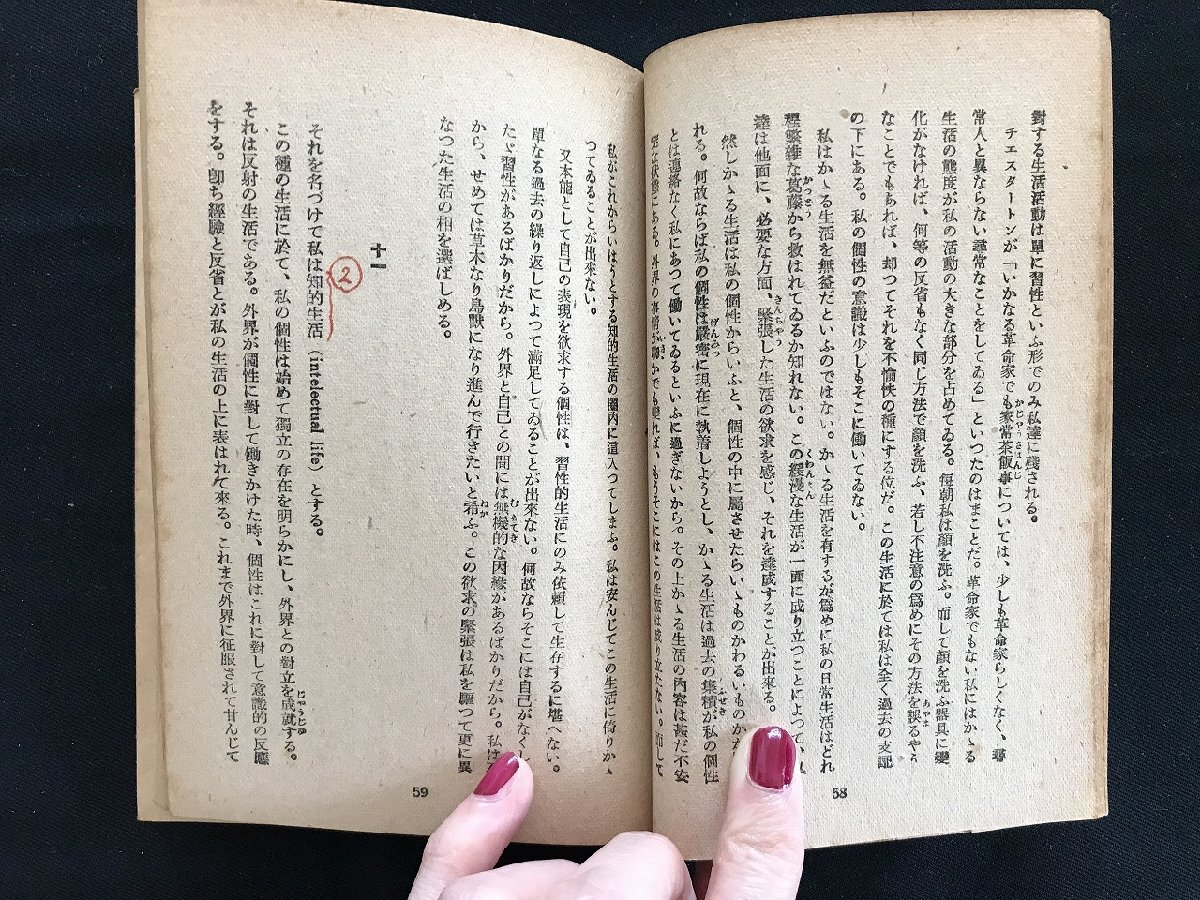 對する生活活動は單に習性といふ形でのみ私達に殘される。
チェスタートンが「いかなる革命家でも家常茶飯事については、少しも革命家らしくなく、尋
常人と異ならない尋常なことをしてゐる」といつたのはまことだ。革命家でもない私にはかゝる
生活の態度が私の活動の大きな部分を占めてゐる。毎朝私は顔を洗ふ。而して顔を洗ふ器具に變
化がなければ、何等の反省もなく同じ方法で顔を洗ふ、若し不注意の爲めにその方法を誤るやう
なことでもあれば、却つてそれを不愉快の種にする位だ。この生活に於ては私は全く過去の支配
の下にある。私の個性の意識は少しもそこに働いてゐない。
私はかゝる生活を無益だといふのではない。かゝる生活を有するが爲めに私の日常生活はどれ
程繁雜な葛藤から救はれてゐるか知れない。この緩漫な生活が一面に成り立つことによつて、
達は他面に、必要な方面、緊張した生活の欲求を感じ、それを達成することが出來る。
然しかゝる生活は私の個性からいふと、個性の中に屬させたらいゝものかわるいものか
れる。何故ならば私の個性は嚴密に現在に執着しようとし、かゝる生活は過去の集積が私の個性
とは連絡なく私にあつて働いてゐるといふに過ぎないから。その上かゝる生活の内容は甚だ不安
定な狀態にある。外界の事情が聊かでも變れば、もうそこにはこの生活は成り立たない。而して
58
私がこれからいはうとする知的生活の圈内に這入つてしまふ。私は安んじてこの生活に倚りかゝ
つてゐることが出來ない。
又本能として自己の表現を欲求する個性は、習性的生活にのみ依頼して生存するに堪へない。
單なる過去の繰り返しによつて滿足してゐることが出來ない。何故ならそこには自己がなくし
たゞ習性があるばかりだから。外界と自己との間には無機的な因緣があるばかりだから。私は
から、せめては草木なり鳥獸になり進んで行きたいと希ふ。この欲求の緊張は私を驅つて更に異
なつた生活の相を選ばしめる。
十一
②
それを名づけて私は知的生活 (intelectual life) とする。
この種の生活に於て、私の個性は始めて獨立の存在を明らかにし、外界との對立を成就する。
それは反射の生活である。外界が個性に對して働きかけた時、個性はこれに對して意識的の反應
をする。卽ち經驗と反省とが私の生活の上に表はれて來る。これまで外界に征服されて甘んじて
59